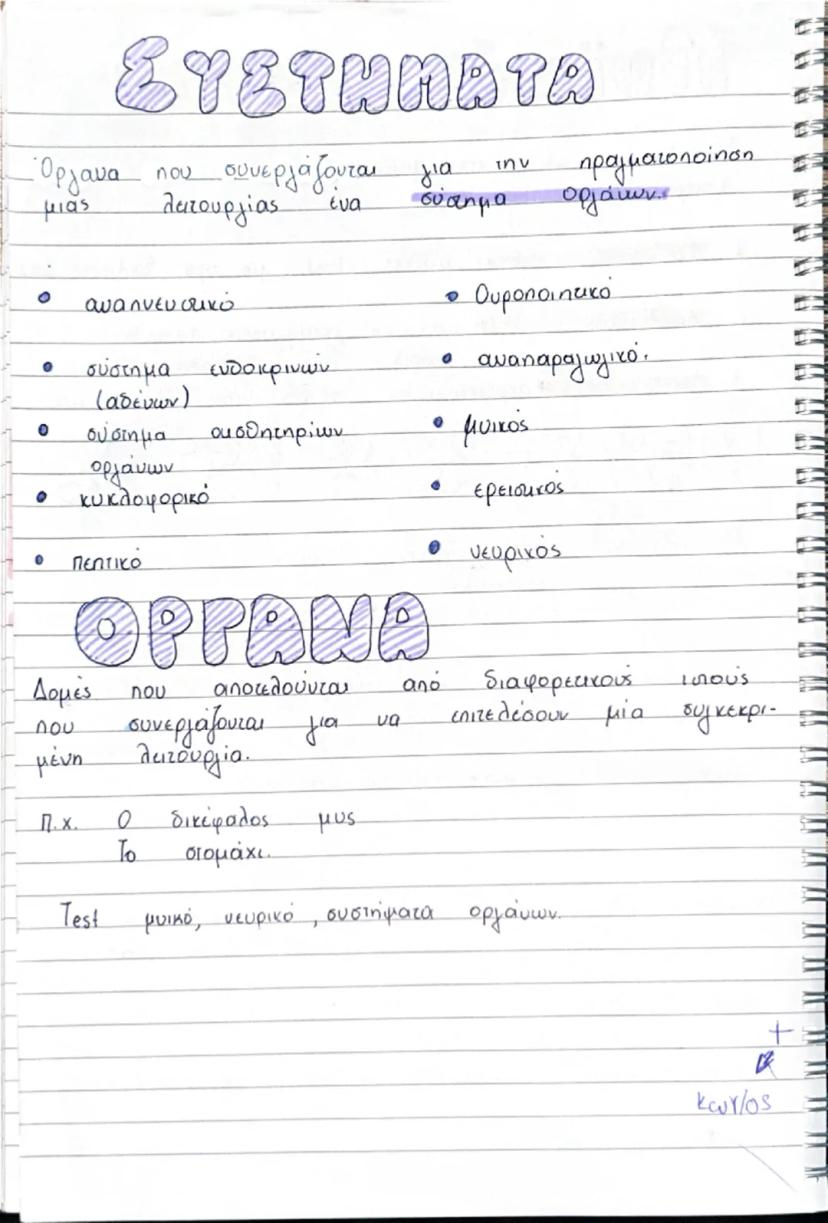 ΣΥΣΤΗΜΑΤΑ
Όργανα που συνεργάζονται για την πραγματοποίηση
μιας λειτουργίας ένα σύστημα οργάνων.
• αναπνευστικό
• σύστημα ενδοκρινών
(αδένων)
• σύστημα αισθητηρίων
οργάνων
• κυκλοφορικό
• πεπτικό
• Ουροποιητικό
• αναπαραγωγικό.
• μυικός
• ερειστικός
• νευρικός
ΟΡΓΑΝΑ
Δομές που αποτελούνται από διαφορετικούς ιστούς
που συνεργάζονται για να επιτελέσουν μία συγκεκρι-
μένη λειτουργία.
Π.χ. Ο δικέφαλος μυς
Το στομάχι.
Test μυικό, νευρικό, συστήματα οργάνων.
+